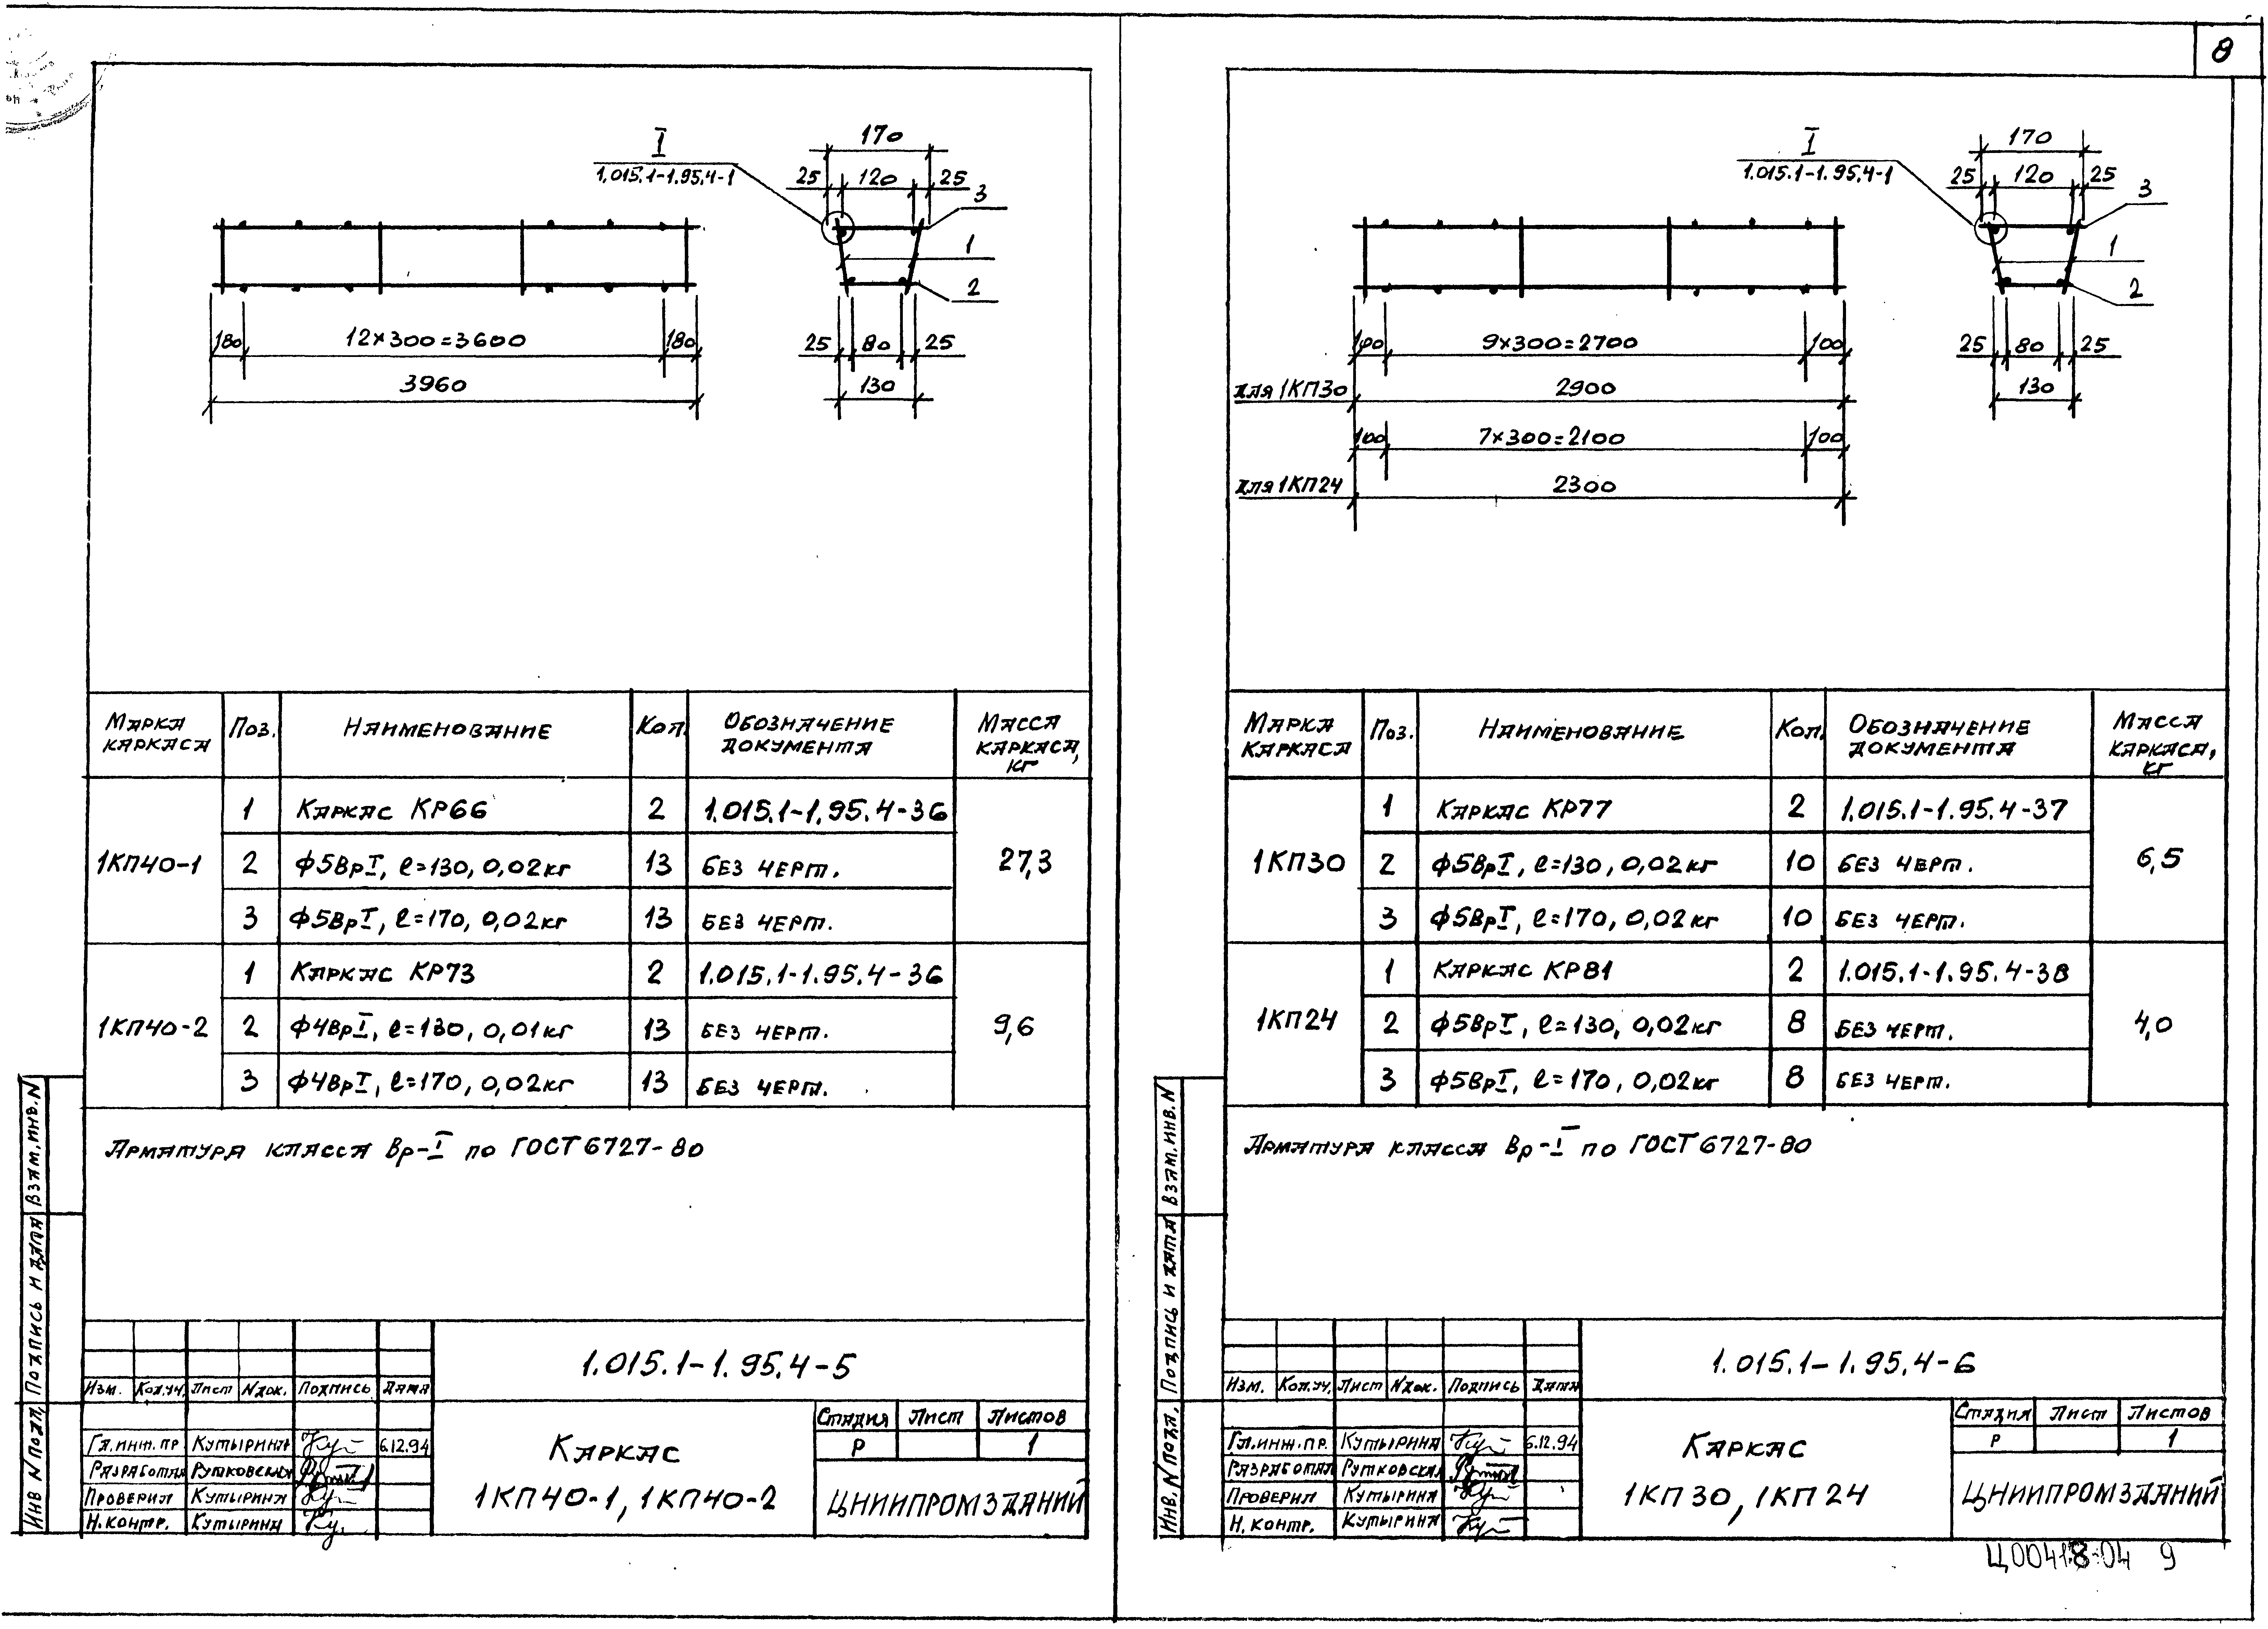 8
I
1.015.1-1.95.4-1
170
25 120 25
3
1
2
180 12×300=3600 180
3960
25 80 25
130
Марка каркаса Поз. Наименование Кол. Обозначение документа Масса каркаса, кг
1КП40-1 27,3
1 Каркас КР66 2 1.015.1-1.95.4-36
2 ф5ВрI, ℓ=130, 0,02кг 13 без черт.
3 ф5ВрI, ℓ=170, 0,02кг 13 без черт.
1КП40-2 9,6
1 Каркас КР73 2 1.015.1-1.95.4-36
2 ф4ВрI, ℓ=130, 0,01кг 13 без черт.
3 ф4ВрI, ℓ=170, 0,02кг 13 без черт.
Арматура класса Вр-I по ГОСТ 6727-80
Инв. N подл. Подпись и дата Взам. инв. N
1.015.1-1.95.4-5
Изм. Кол.уч. Лист Nдок. Подпись Дата
Гл.инж.пр Кутырина 6.12.94
Разработал Рутковская
Проверил Кутырина
Н.контр. Кутырина
Каркас
1КП40-1, 1КП40-2
Стадия Лист Листов
Р 1
ЦНИИПРОМЗДАНИЙ
I
1.015.1-1.95.4-1
170
25 120 25
3
1
2
100 9×300=2700 100
для 1КП30 2900
100 7×300=2100 100
для 1КП24 2300
25 80 25
130
Марка каркаса Поз. Наименование Кол. Обозначение документа Масса каркаса, кг
1КП30 6,5
1 Каркас КР77 2 1.015.1-1.95.4-37
2 ф5ВрI, ℓ=130, 0,02кг 10 без черт.
3 ф5ВрI, ℓ=170, 0,02кг 10 без черт.
1КП24 4,0
1 Каркас КР81 2 1.015.1-1.95.4-38
2 ф5ВрI, ℓ=130, 0,02кг 8 без черт.
3 ф5ВрI, ℓ=170, 0,02кг 8 без черт.
Арматура класса Вр-I по ГОСТ 6727-80
Инв. N подл. Подпись и дата Взам. инв. N
1.015.1-1.95.4-6
Изм. Кол.уч. Лист Nдок. Подпись Дата
Гл.инж.пр. Кутырина 6.12.94
Разработал Рутковская
Проверил Кутырина
Н.контр. Кутырина
Каркас
1КП30, 1КП24
Стадия Лист Листов
Р 1
ЦНИИПРОМЗДАНИЙ
Ц00418-04 9